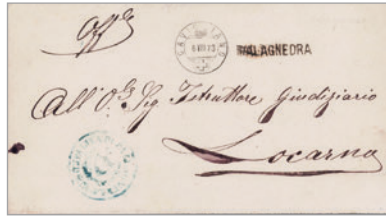 Offo
CAVIGLIANO
PALAGNEDRA
All' O.le Sig Istruttore Giudiziario
Locarno